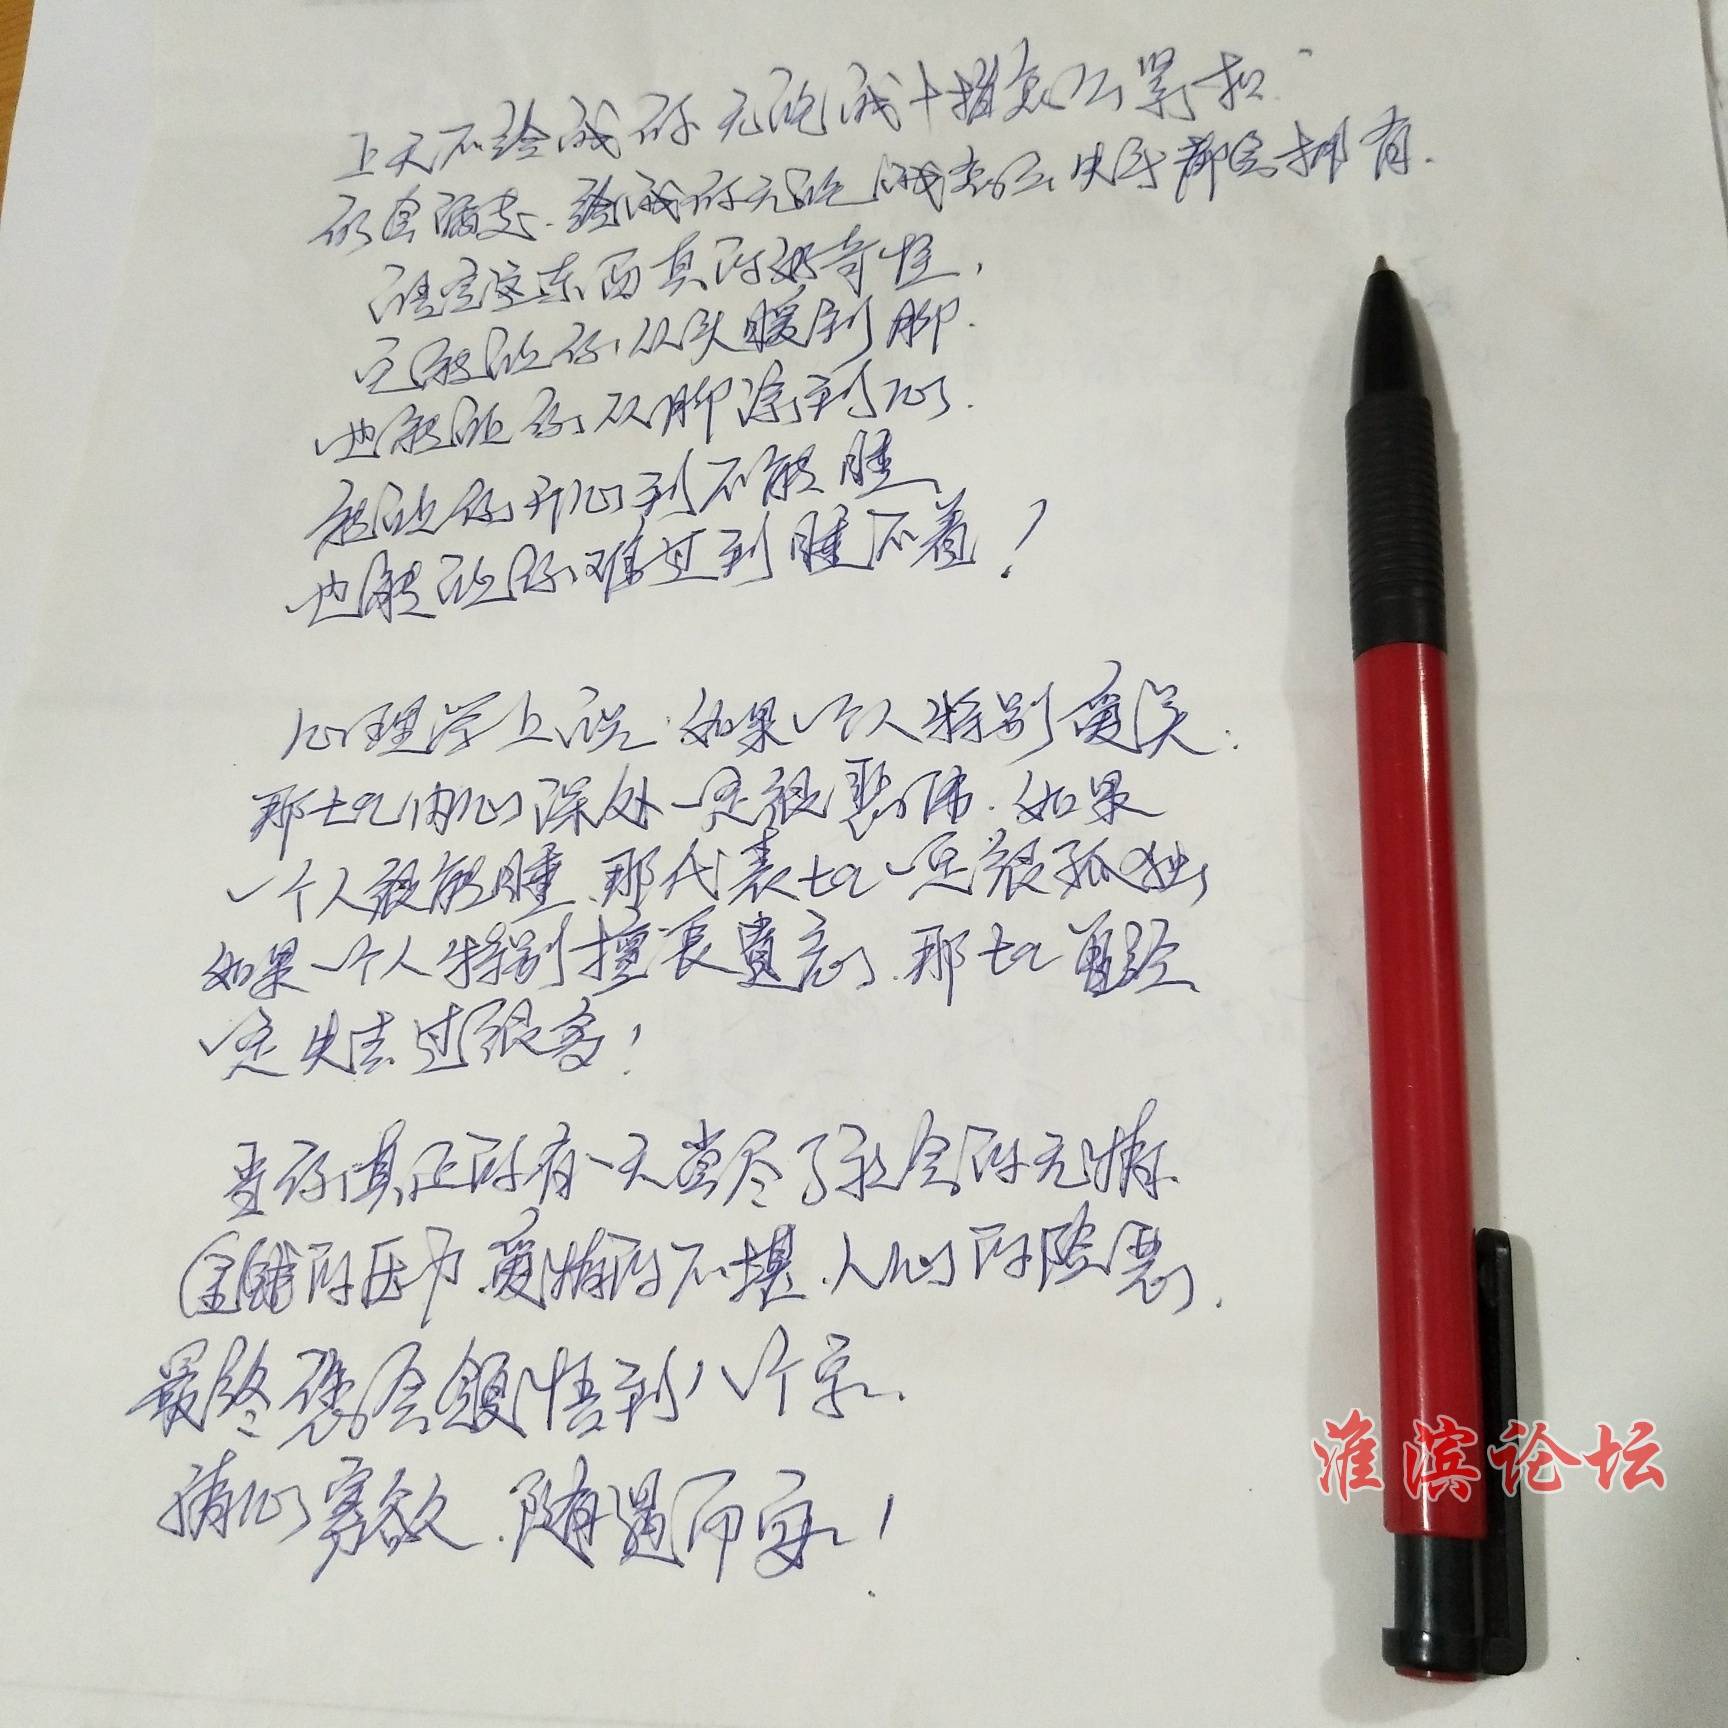 上天不给我的无论我十指怎么紧扣
仍会漏走.给我的无论我怎么失手都会拥有.
语言这东西真的好奇怪,
它能让你从头暖到脚.
也能让你从脚凉到心.
能让你开心到不能睡
也能让你难过到睡不着!
心理学上说.如果一个人特别爱笑.
那么他内心深处一定很悲伤.如果
一个人很能睡.那代表他一定很孤独
如果一个人特别擅长遗忘.那他曾经
一定失去过很多!
当你真正的有一天尝尽了社会的无情.
金钱的压力.爱情的不堪.人心的险恶.
最终你会领悟到八个字.
清心寡欲.随遇而安!
淮滨论坛